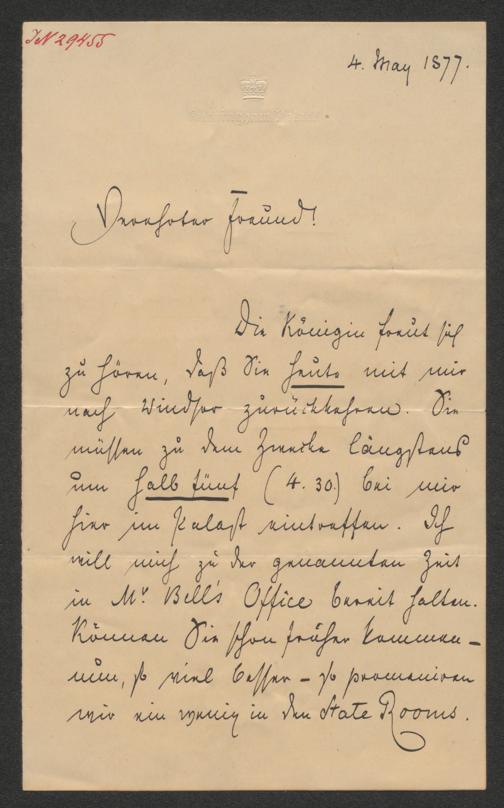 IN 29455
4. May 1877.
Buckingham Palace
Verehrter Freund!
Die Königin freut sich
zu hören, daß Sie heute mit mir
nach Windsor zurückkehren. Sie
müssen zu dem Zwecke längstens
um halb fünf (4.30.) bei mir
hier im Palast eintreffen. Ich
will mich zu der genannten Zeit
in Mr Bell's Office bereit halten.
Können Sie schon früher kommen –
nun, so viel besser – so promeniren
wir ein wenig in den State Rooms.